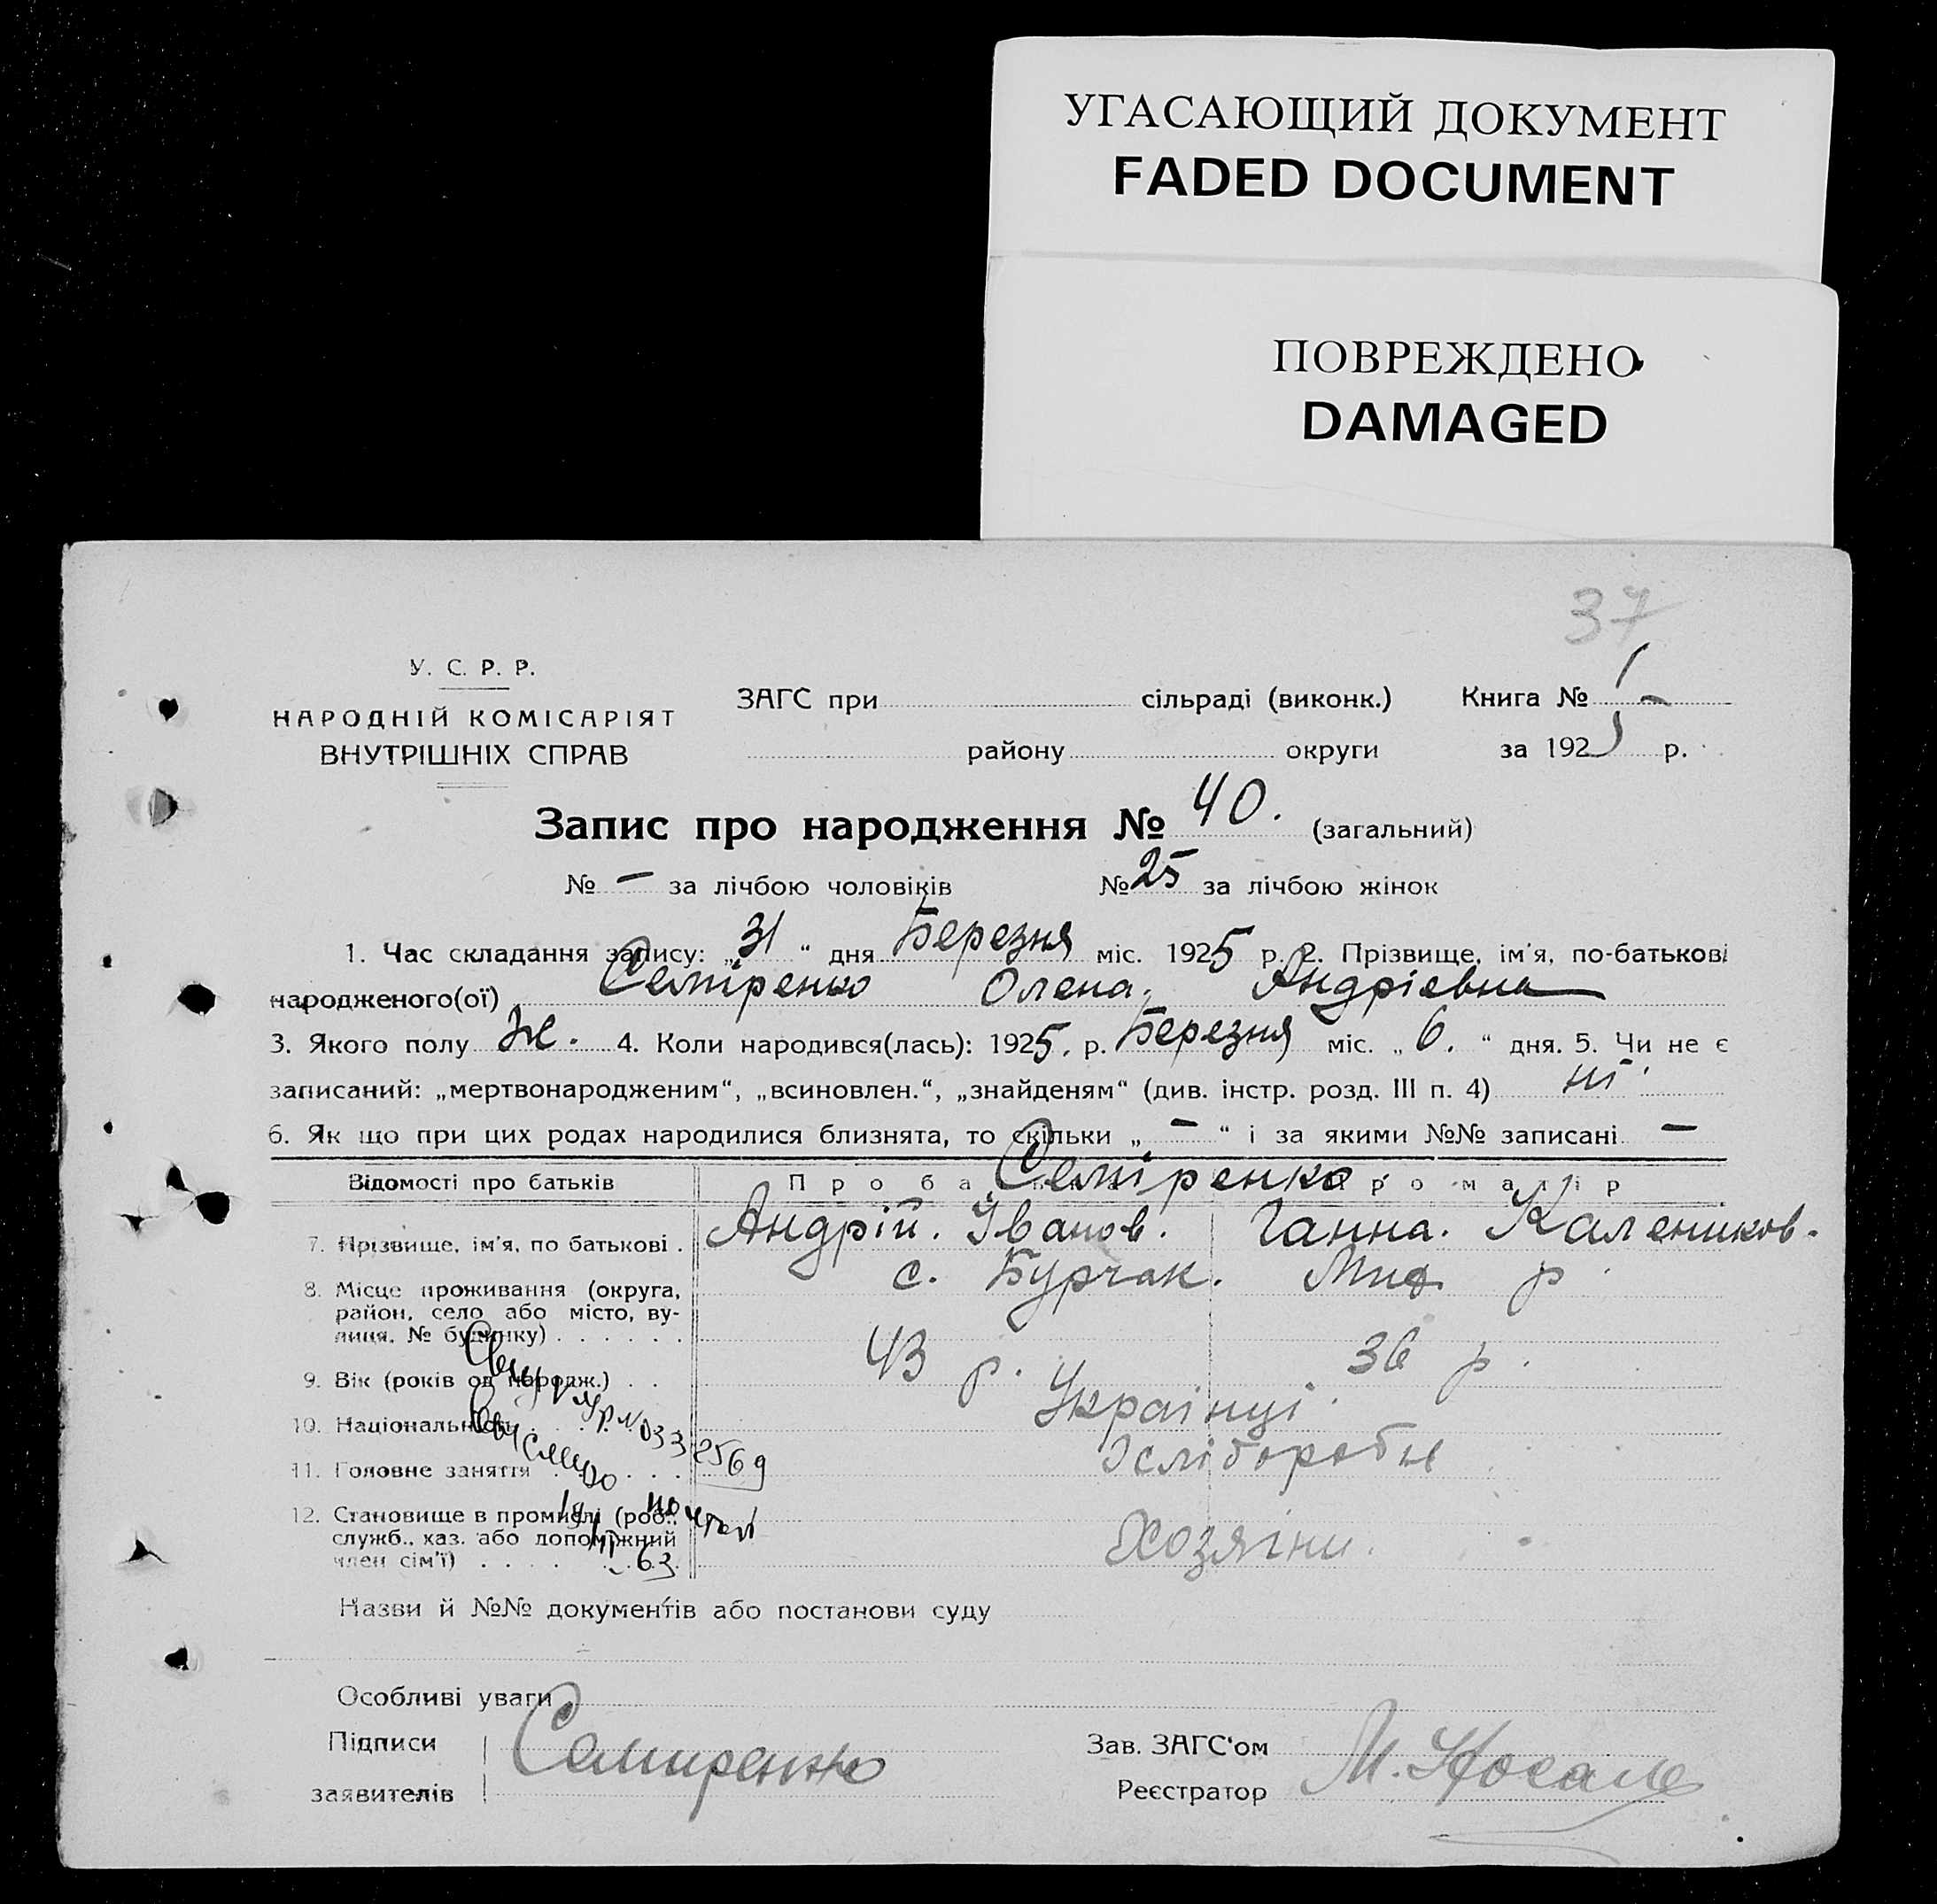 УГАСАЮЩИЙ ДОКУМЕНТ
FADED DOCUMENT
ПОВРЕЖДЕНО
DAMAGED
37
У. С. Р. Р.
НАРОДНІЙ КОМІСАРІЯТ
ВНУТРІШНІХ СПРАВ
ЗАГС при сільраді (виконк.) Книга № 1
району округи за 192 р.
Запис про народження № 40. (загальний)
№ – за лічбою чоловіків № 25 за лічбою жінок
1. Час складання запису: „31“ дня Березня міс. 1925 р. 2. Прізвище, ім'я, по-батькові
народженого(ої) Семіренко Олена Андріевна
3. Якого полу Ж. 4. Коли народився(лась): 1925. р. Березня міс. „6.“ дня. 5. Чи не є
записаний: „мертвонародженим“, „всиновлен.“, „знайденям“ (див. інстр. розд. III п. 4) ні
6. Як що при цих родах народилися близнята, то скільки „–“ і за якими №№ записані –
Відомості про батьків Про ба Семіренко. ро матір
7. Прізвище, ім'я, по батькові . Андрій. Іванов. Ганна. Калеников.
8. Місце проживання (округа,
район, село або місто, ву-
лиця, № будинку) с. Бурчак. Мих р
9. Вік (років од народж.) 43 р. 36 р.
10. Національність Українці.
11. Головне заняття
2569
12. Становище в промислі (роб.,
служб., хаз. або допоміжний
член сім'ї) Хозяіни.
63
Назви й №№ документів або постанови суду
Особливі уваги
Підписи
заявителів Семиренко
Зав. ЗАГС'ом
Реєстратор М.